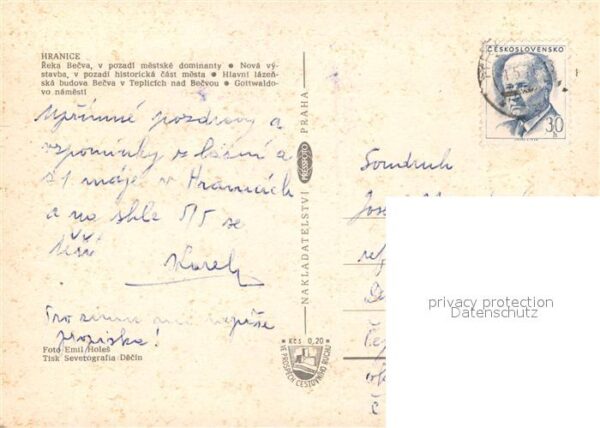 HRANICE
Řeka Bečva, v pozadí městské dominanty ● Nová vý-
stavba, v pozadí historická část města ● Hlavní lázeň-
ská budova Bečva v Teplicích nad Bečvou ● Gottwaldo-
vo náměstí
Upřímné pozdravy a
vzpomínky z lázní a
z 1 máje v Hranicích
a na shle 5/5 se
těší
Karel
Pro zimu mi nepíše
propiska!
Foto Emil Holeš
Tisk Severografia Děčín
NAKLADATELSTVÍ PRESSFOTO PRAHA
Kčs 0,20
VE PROSPĚCH CESTOVNÍHO RUCHU
ČESKOSLOVENSKO
30
h
Soudruh
Jose
privacy protection
Datenschutz